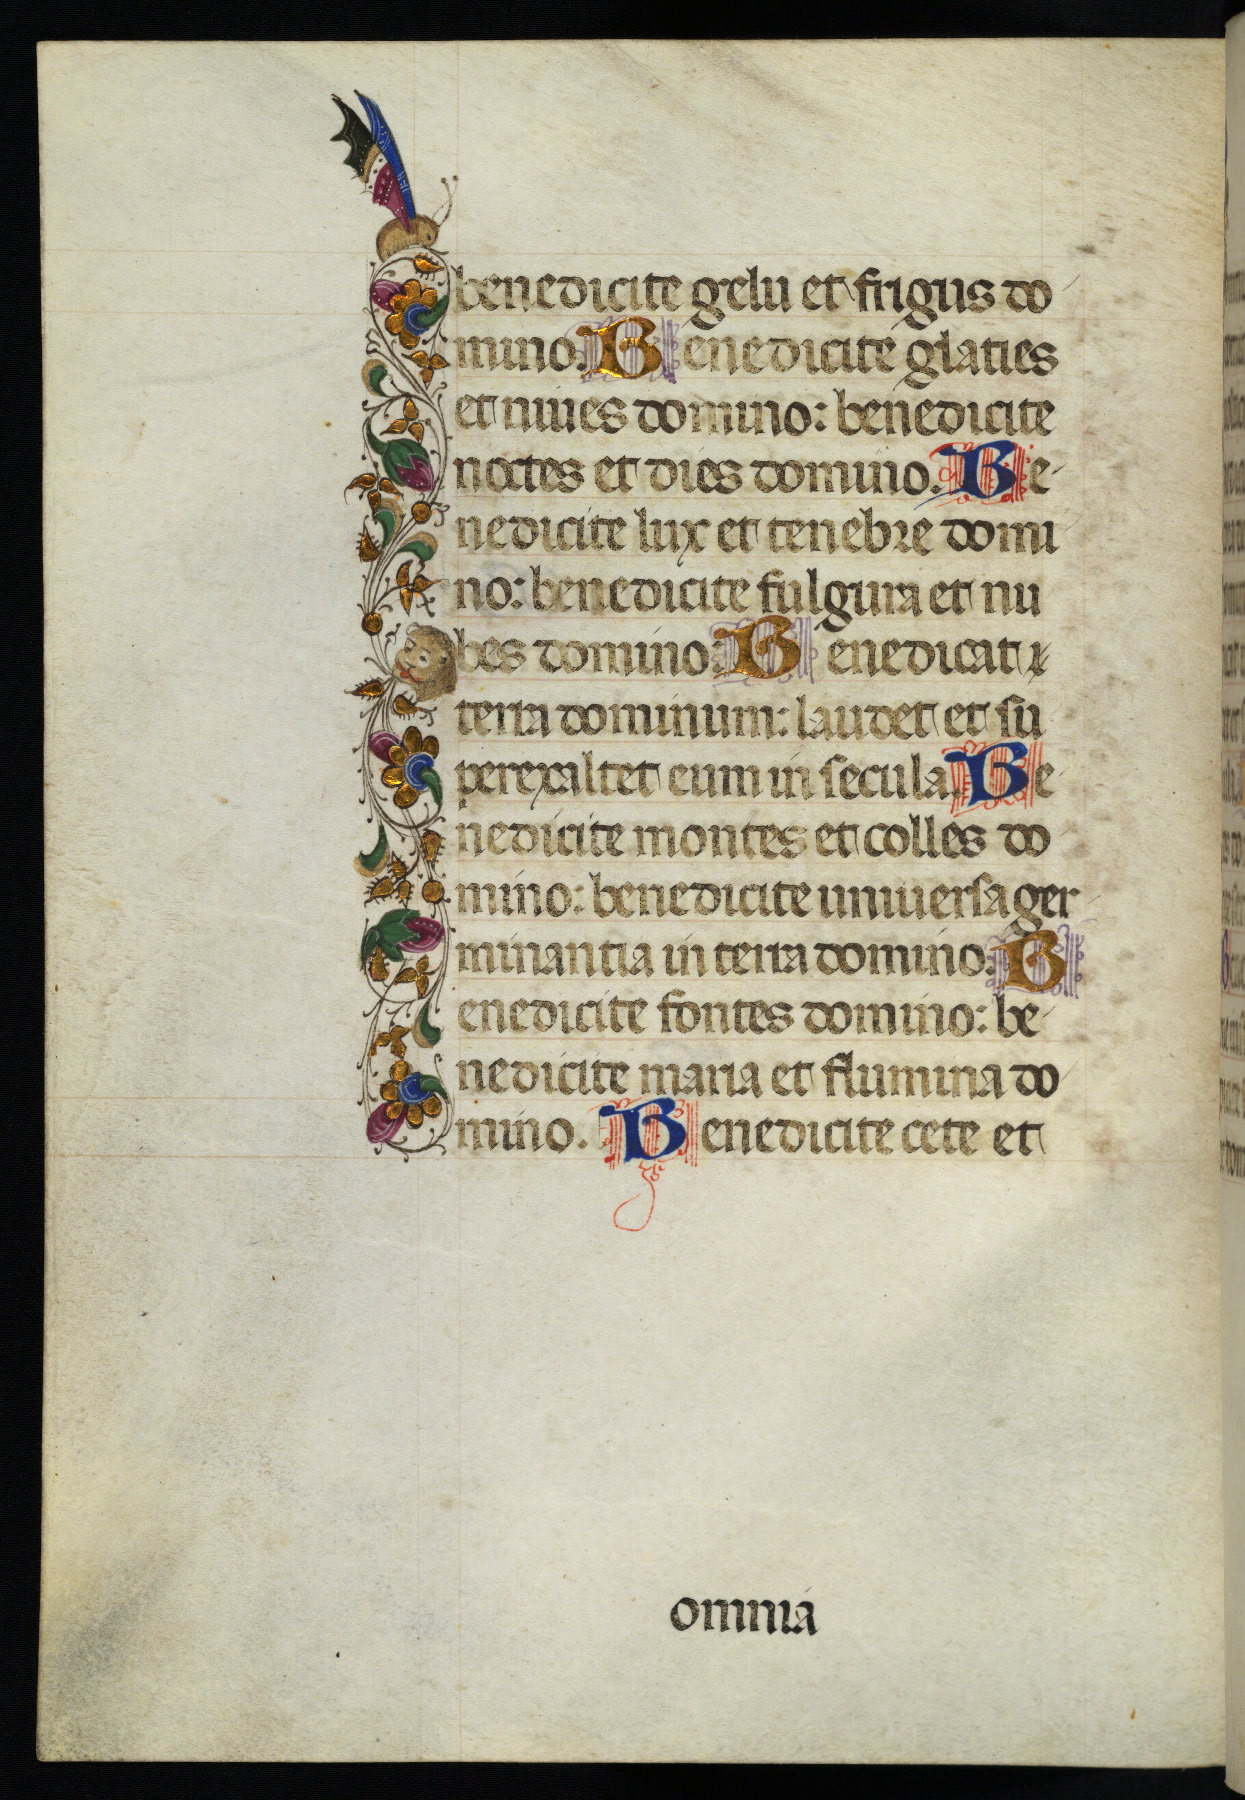 benedicite gelu et frigus do
mino. Benedicite glaties
et niues domino: benedicite
noctes et dies domino. Be
nedicite lux et tenebre domi
no: benedicite fulgura et nu
bes domino: Benedicat
terra dominum: laudet et su
perexaltet eum in secula. Be
nedicite montes et colles do
mino: benedicite uniuersa ger
minantia in terra domino: B
enedicite fontes domino: be
nedicite maria et flumina do
mino. Benedicite cete et
omnia